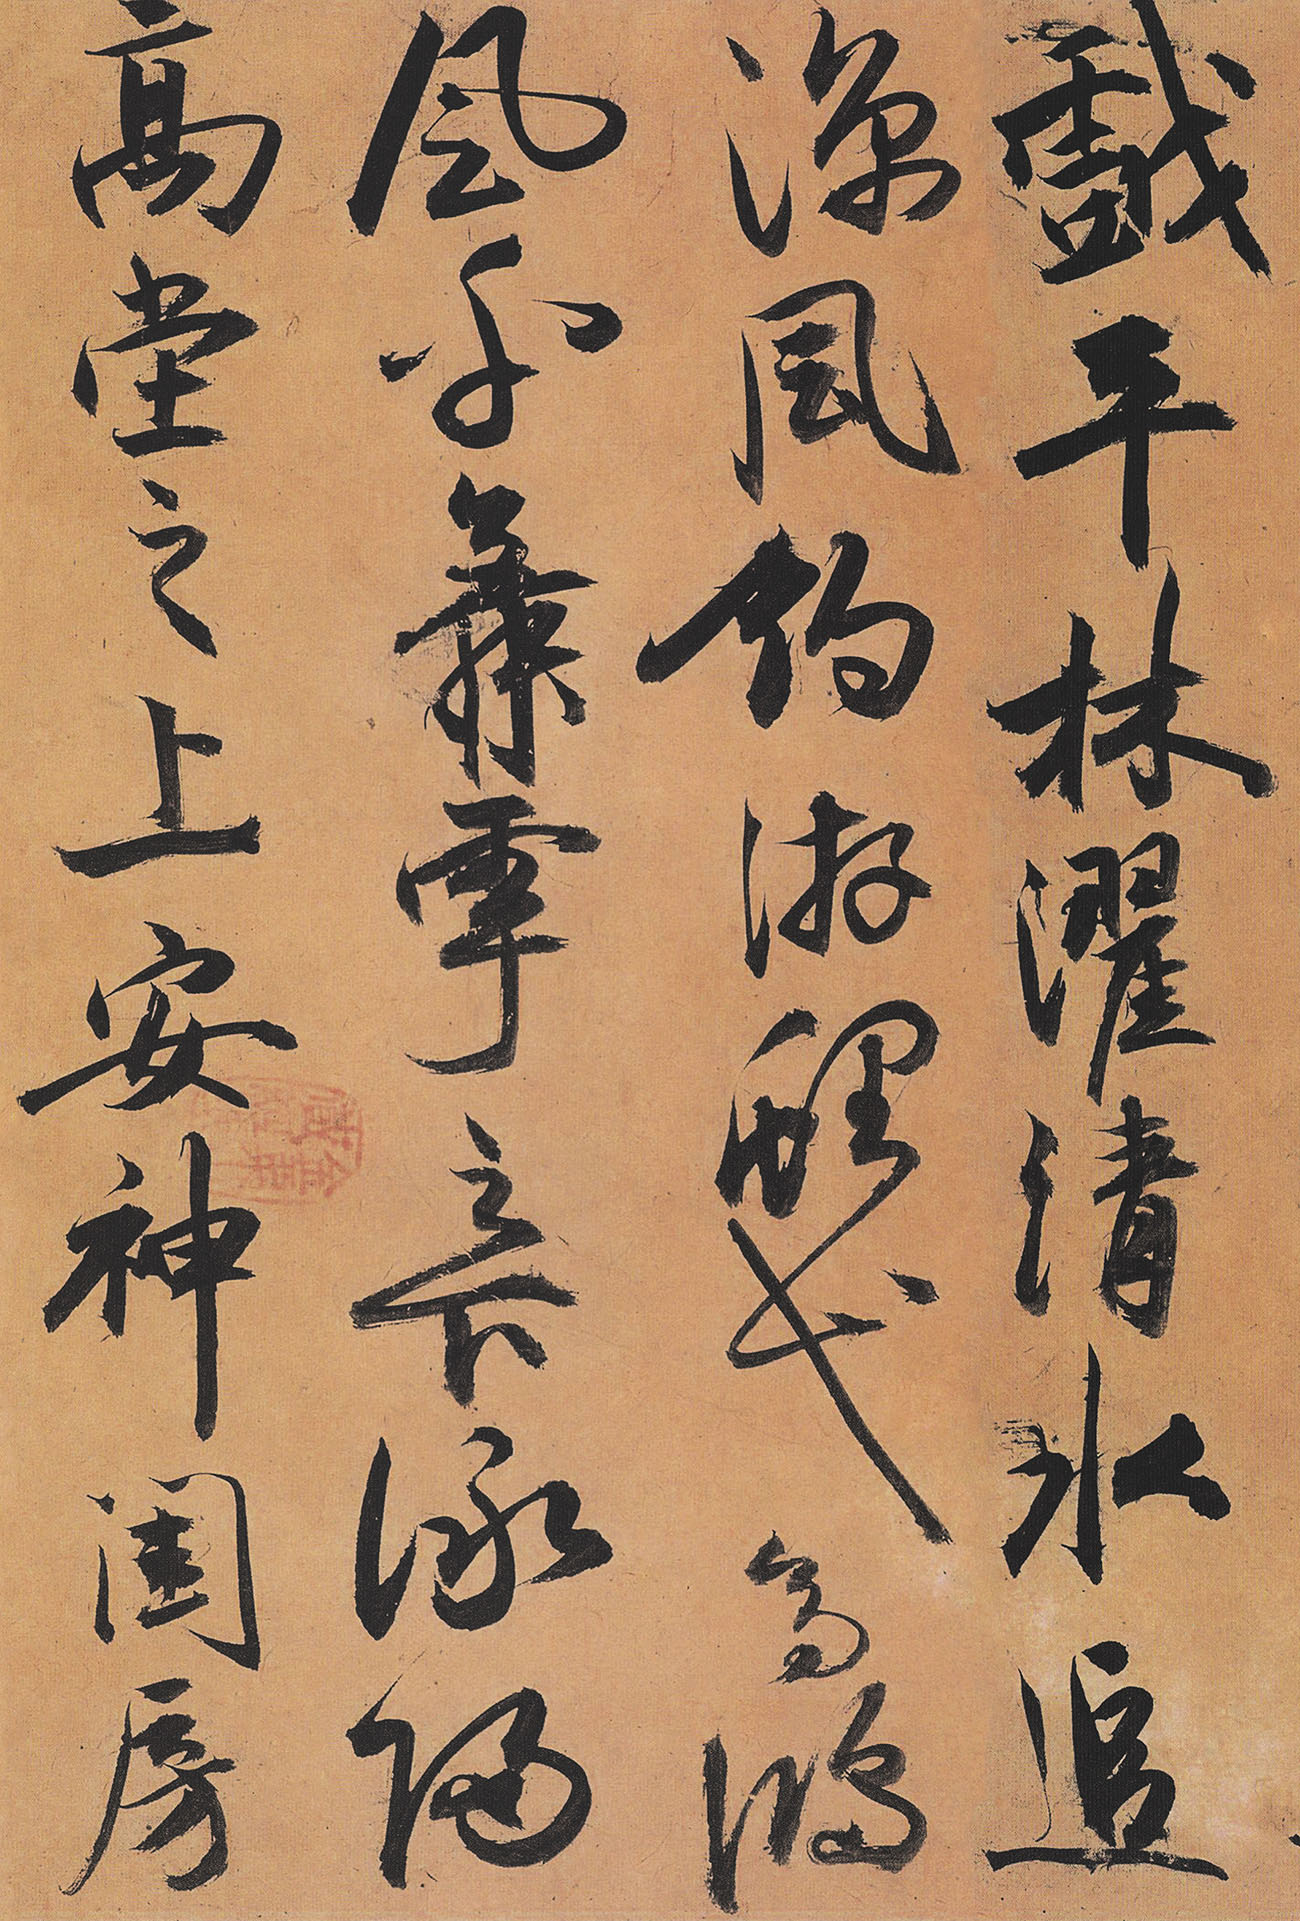 戲平林濯清水追
涼風釣游鯉弋高鴻
風乎舞雩之下詠歸
高堂之上安神閨房